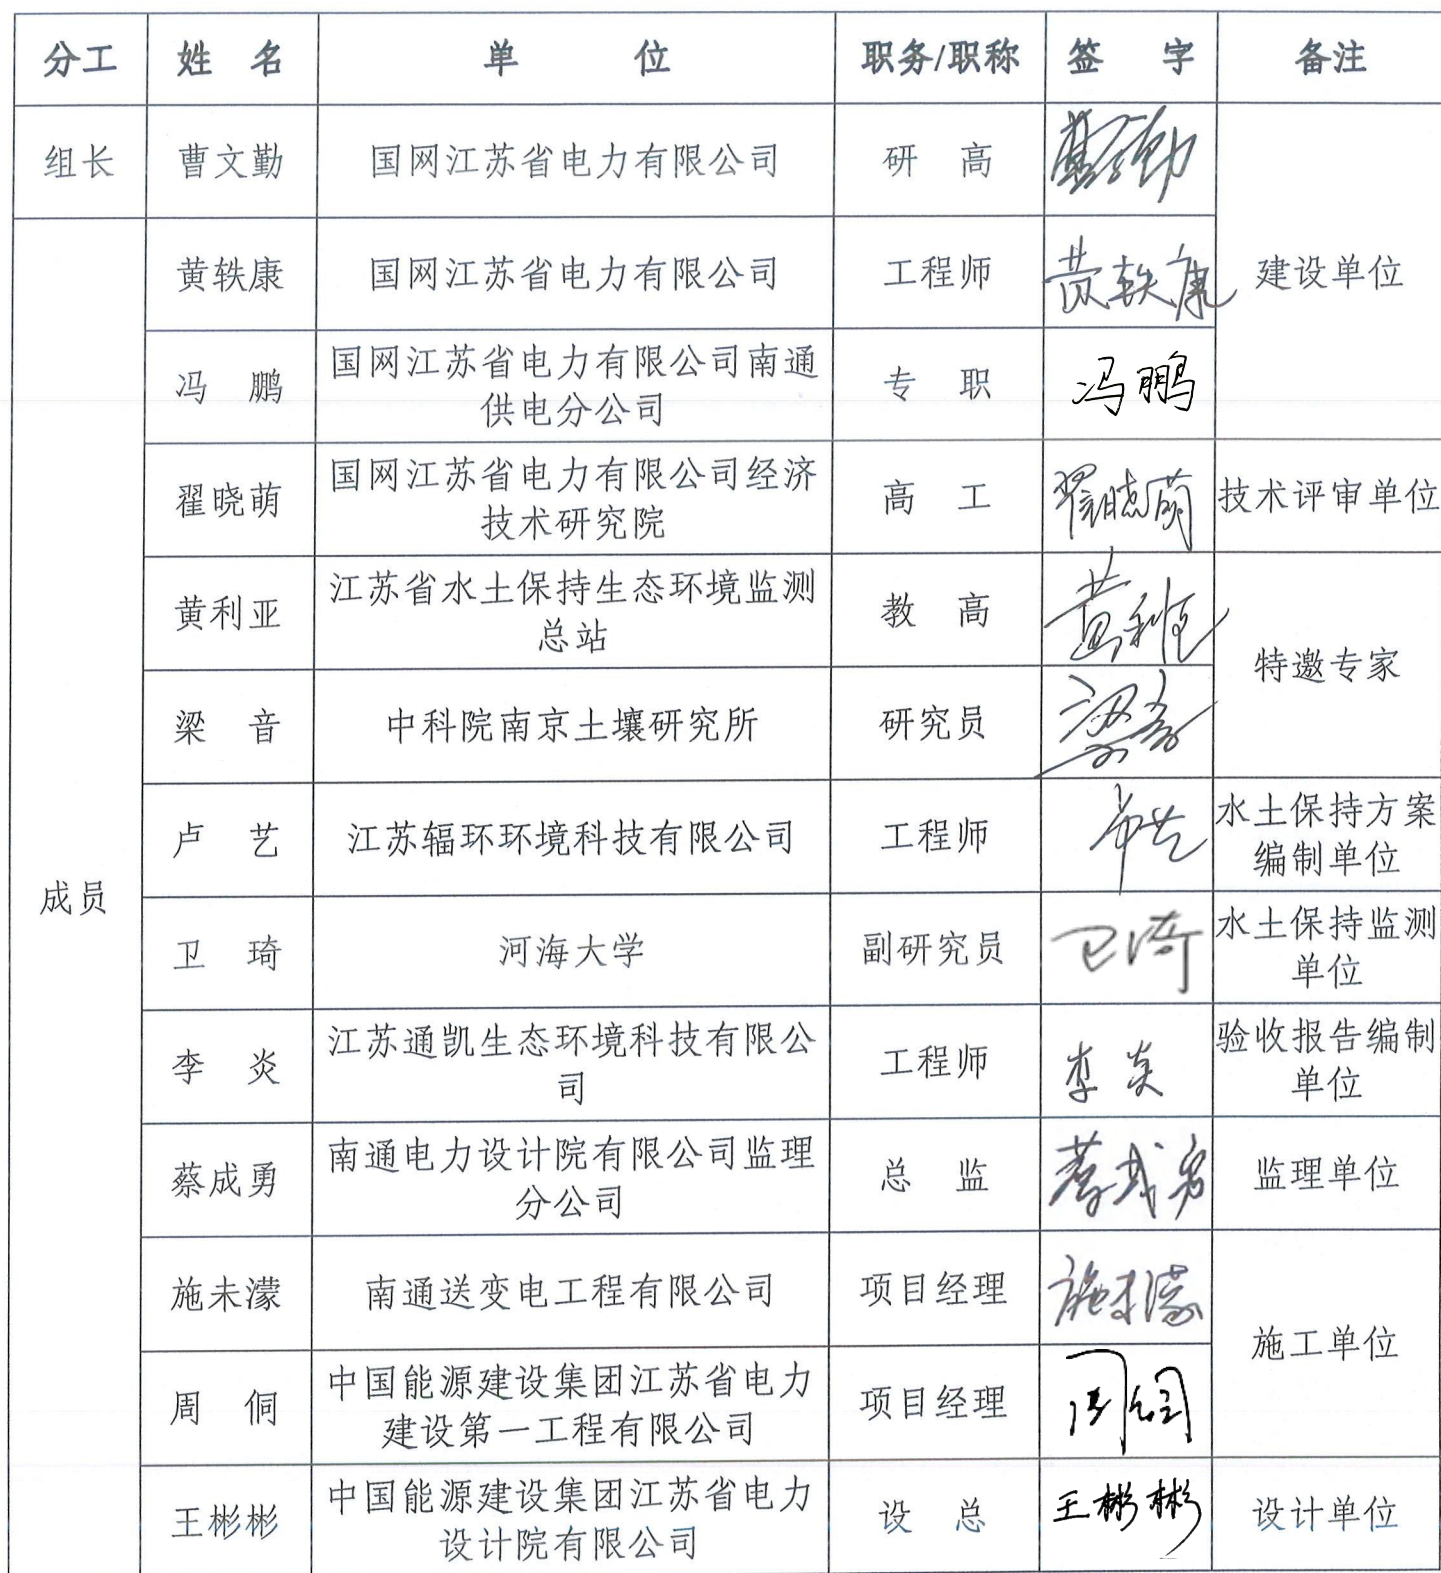 分工 姓 名 单 位 职务/职称 签 字 备注
组长 曹文勤 国网江苏省电力有限公司 研 高 曹文勤
建设单位
黄轶康 国网江苏省电力有限公司 工程师 黄轶康
冯 鹏 国网江苏省电力有限公司南通
供电分公司 专 职 冯鹏
翟晓萌 国网江苏省电力有限公司经济
技术研究院 高 工 翟晓萌 技术评审单位
黄利亚 江苏省水土保持生态环境监测
总站 教 高 黄利亚
特邀专家
梁 音 中科院南京土壤研究所 研究员 梁音
成员
卢 艺 江苏辐环环境科技有限公司 工程师 卢艺 水土保持方案
编制单位
卫 琦 河海大学 副研究员 卫琦 水土保持监测
单位
李 炎 江苏通凯生态环境科技有限公
司 工程师 李炎 验收报告编制
单位
蔡成勇 南通电力设计院有限公司监理
分公司 总 监 蔡成勇 监理单位
施未濛 南通送变电工程有限公司 项目经理 施未濛
施工单位
周 侗 中国能源建设集团江苏省电力
建设第一工程有限公司 项目经理 周侗
王彬彬 中国能源建设集团江苏省电力
设计院有限公司 设 总 王彬彬 设计单位